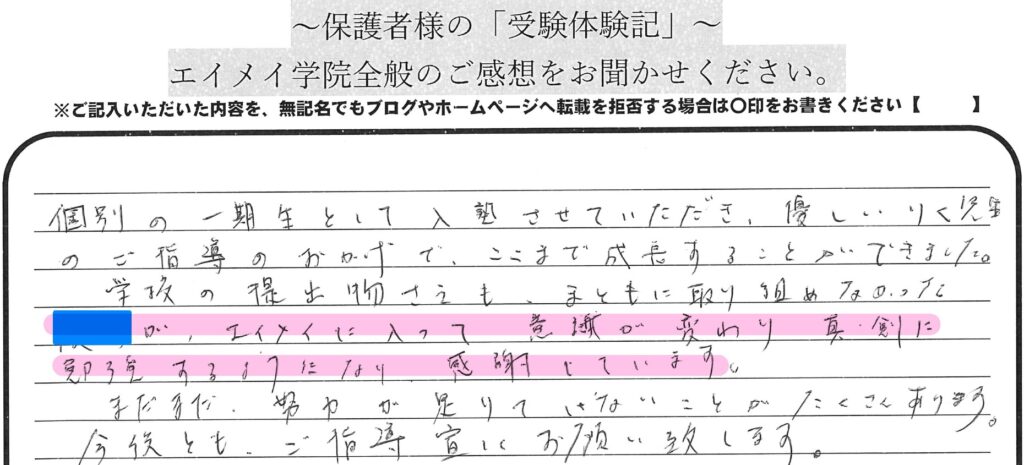 ~保護者様の「受験体験記」~
エイメイ学院全般のご感想をお聞かせください。
※ご記入いただいた内容を、無記名でもブログやホームページへ転載を拒否する場合は〇印をお書きください【 】
個別の一期生として入塾させていただき、優しいりく先生
のご指導のおかげで、ここまで成長することができました。
学校の提出物さえも、まともに取り組めなかった
が、エイメイに入って意識が変わり真剣に
勉強するようになり感謝しています。
まだまだ、努力が足りていないことがたくさんあります。
今後とも、ご指導宜しくお願い致します。